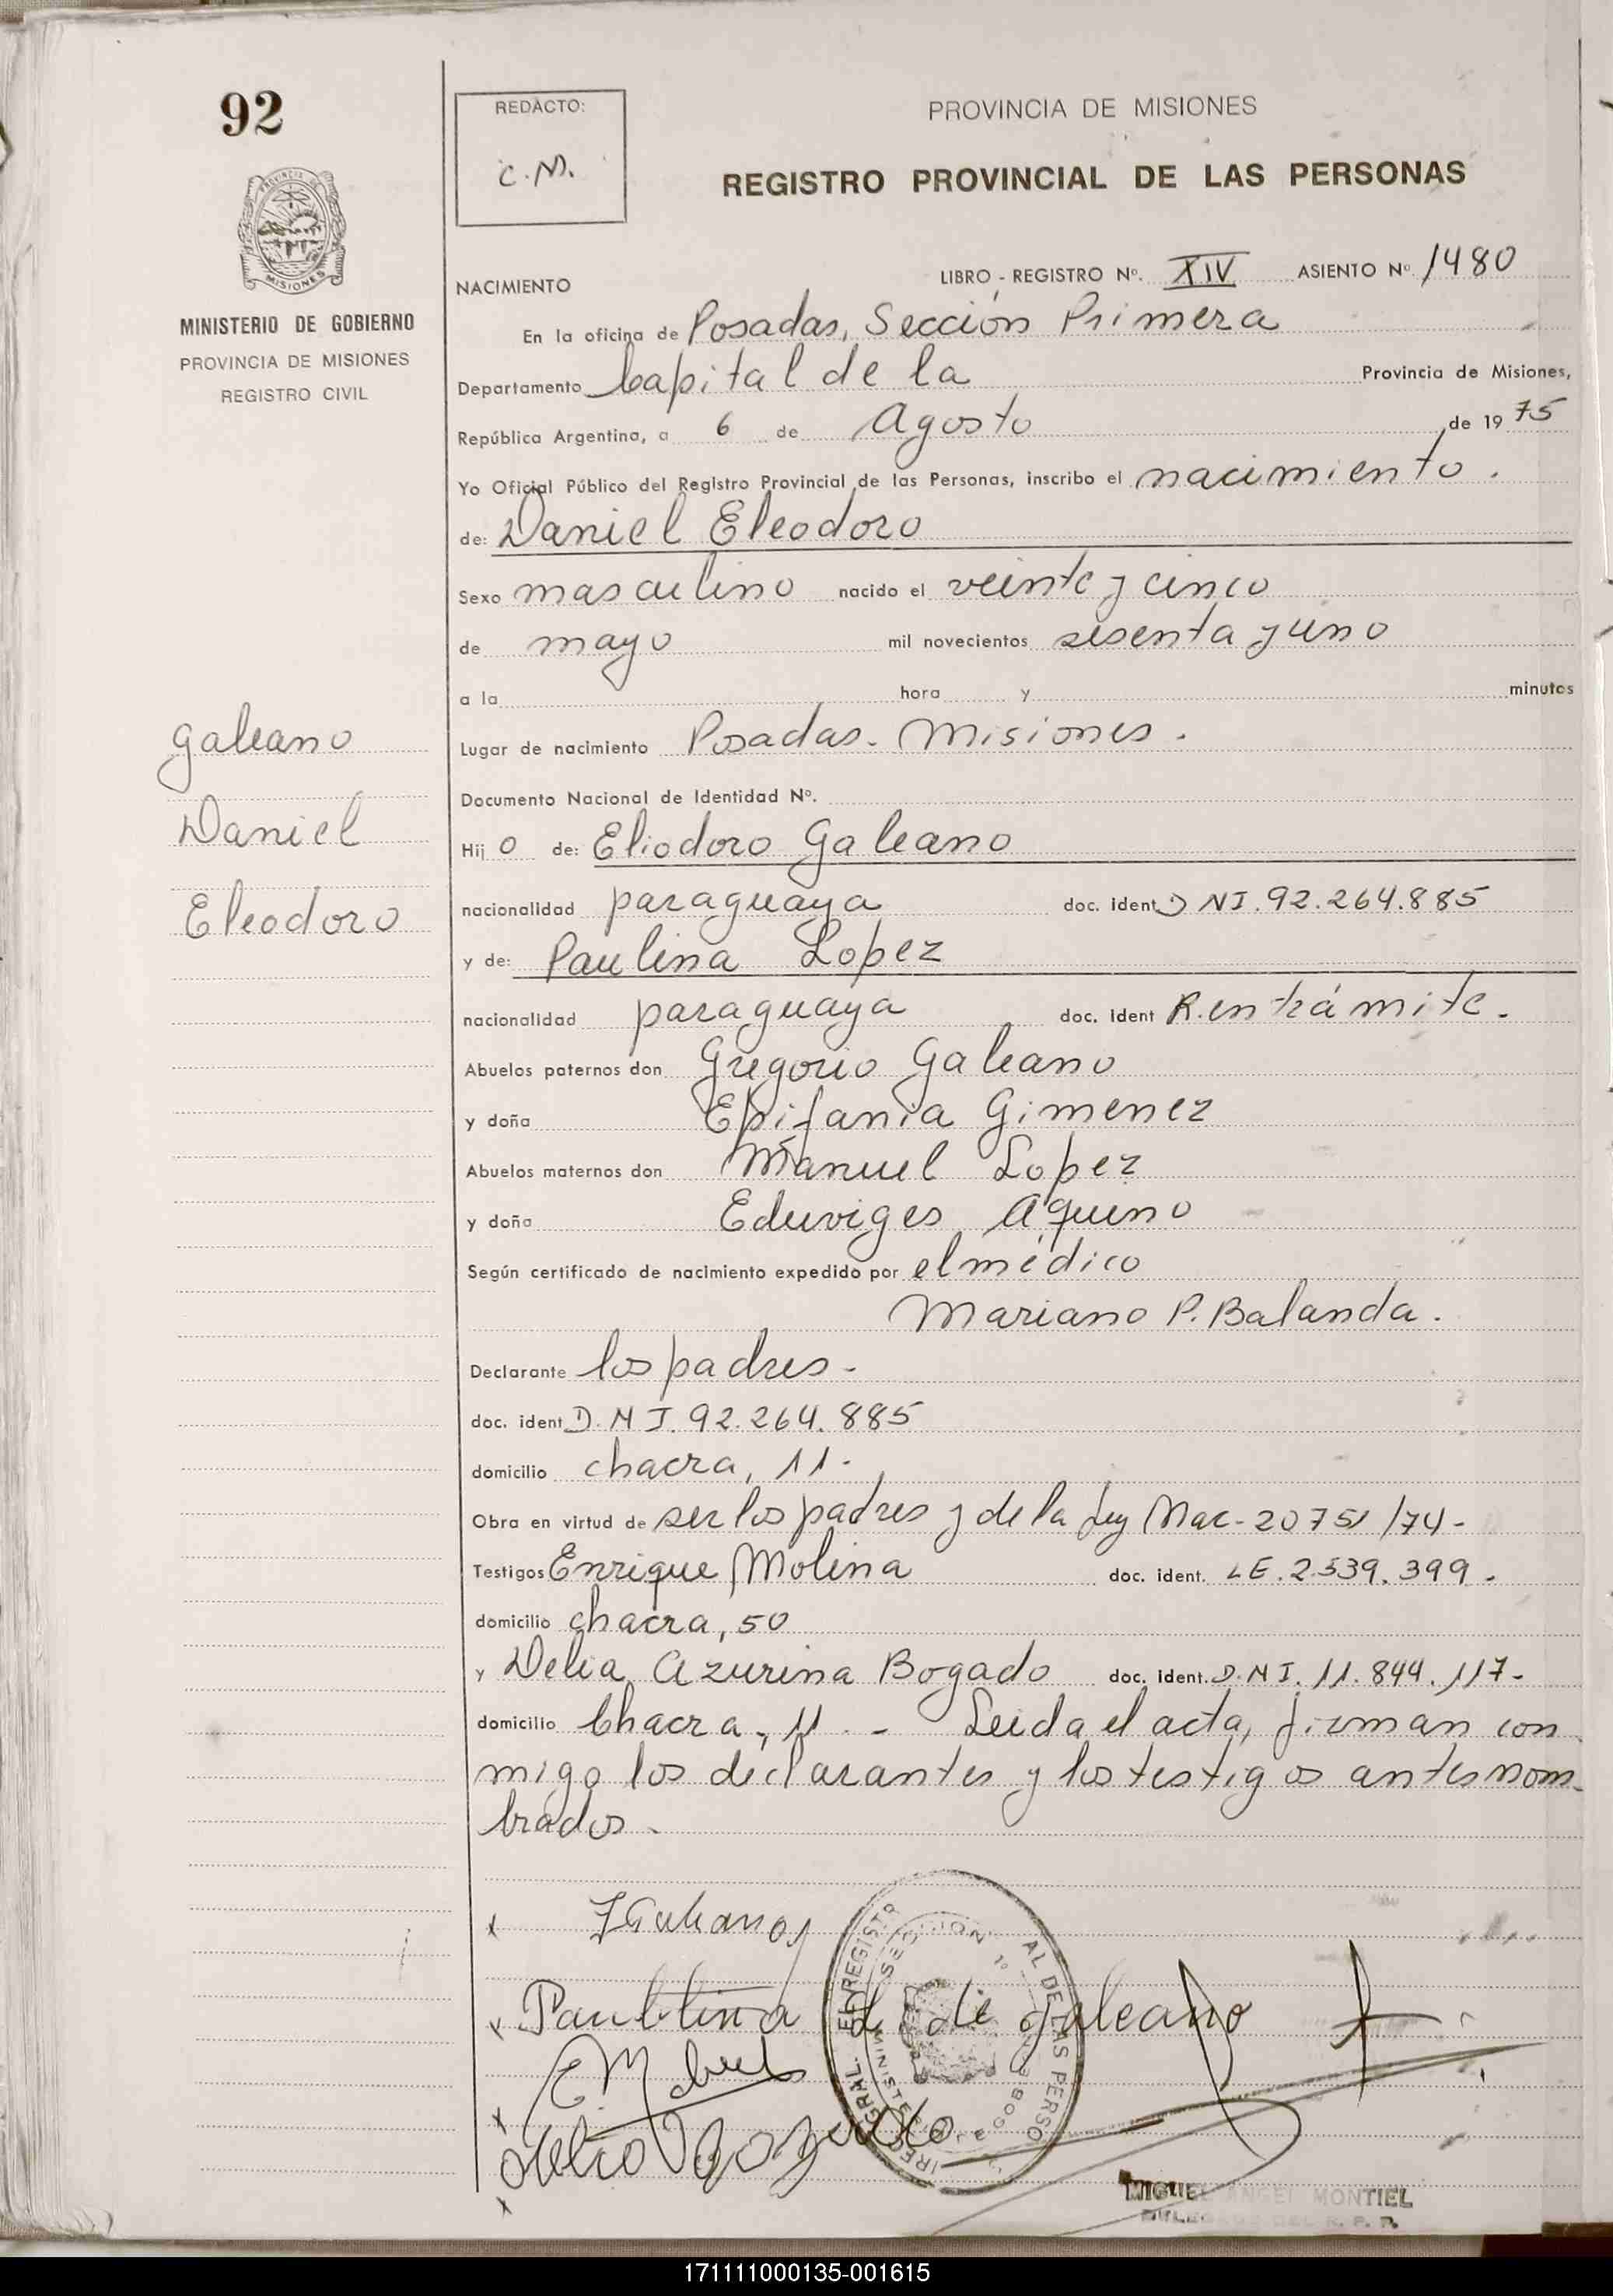 92
REDACTO:
C.M.
PROVINCIA DE MISIONES
REGISTRO PROVINCIAL DE LAS PERSONAS
PROVINCIA DE
MISIONES
MINISTERIO DE GOBIERNO
PROVINCIA DE MISIONES
REGISTRO CIVIL
NACIMIENTO LIBRO - REGISTRO Nº. XIV ASIENTO Nº 1480
En la oficina de Posadas, Sección Primera
Departamento Capital de la Provincia de Misiones,
República Argentina, a 6 de Agosto de 1975
Yo Oficial Público del Registro Provincial de las Personas, inscribo el nacimiento.
de: Daniel Eleodoro
Sexo masculino nacido el veinte y cinco
de mayo mil novecientos sesenta y uno
a la hora y minutos
Lugar de nacimiento Posadas. Misiones.
Galeano
Daniel
Eleodoro
Documento Nacional de Identidad Nº.
Hij o de: Eliodoro Galeano
nacionalidad paraguaya doc. ident DNI. 92.264.885
y de: Paulina Lopez
nacionalidad paraguaya doc. ident R. en trámite.
Abuelos paternos don Gregorio Galeano
y doña Epifania Gimenez
Abuelos maternos don Manuel Lopez
y doña Eduviges Aquino
Según certificado de nacimiento expedido por el médico
Mariano P. Balanda.
Declarante los padres-
doc. ident D.N.I. 92.264.885
domicilio chacra, 11.
Obra en virtud de ser los padres y de la Ley Nac- 20751/74-
Testigos Enrique Molina doc. ident. LE. 2.539.399.
domicilio chacra, 50
y Delia Azurina Bogado doc. ident. D.N.I. 11.844.117-
domicilio Chacra, 11. - Leida el acta, firman con
migo los declarantes y los testigos antes nom-
brados.
Paulina L de Galeano
SECCION 1º
MIGUEL ANGEL MONTIEL
171111000135-001615